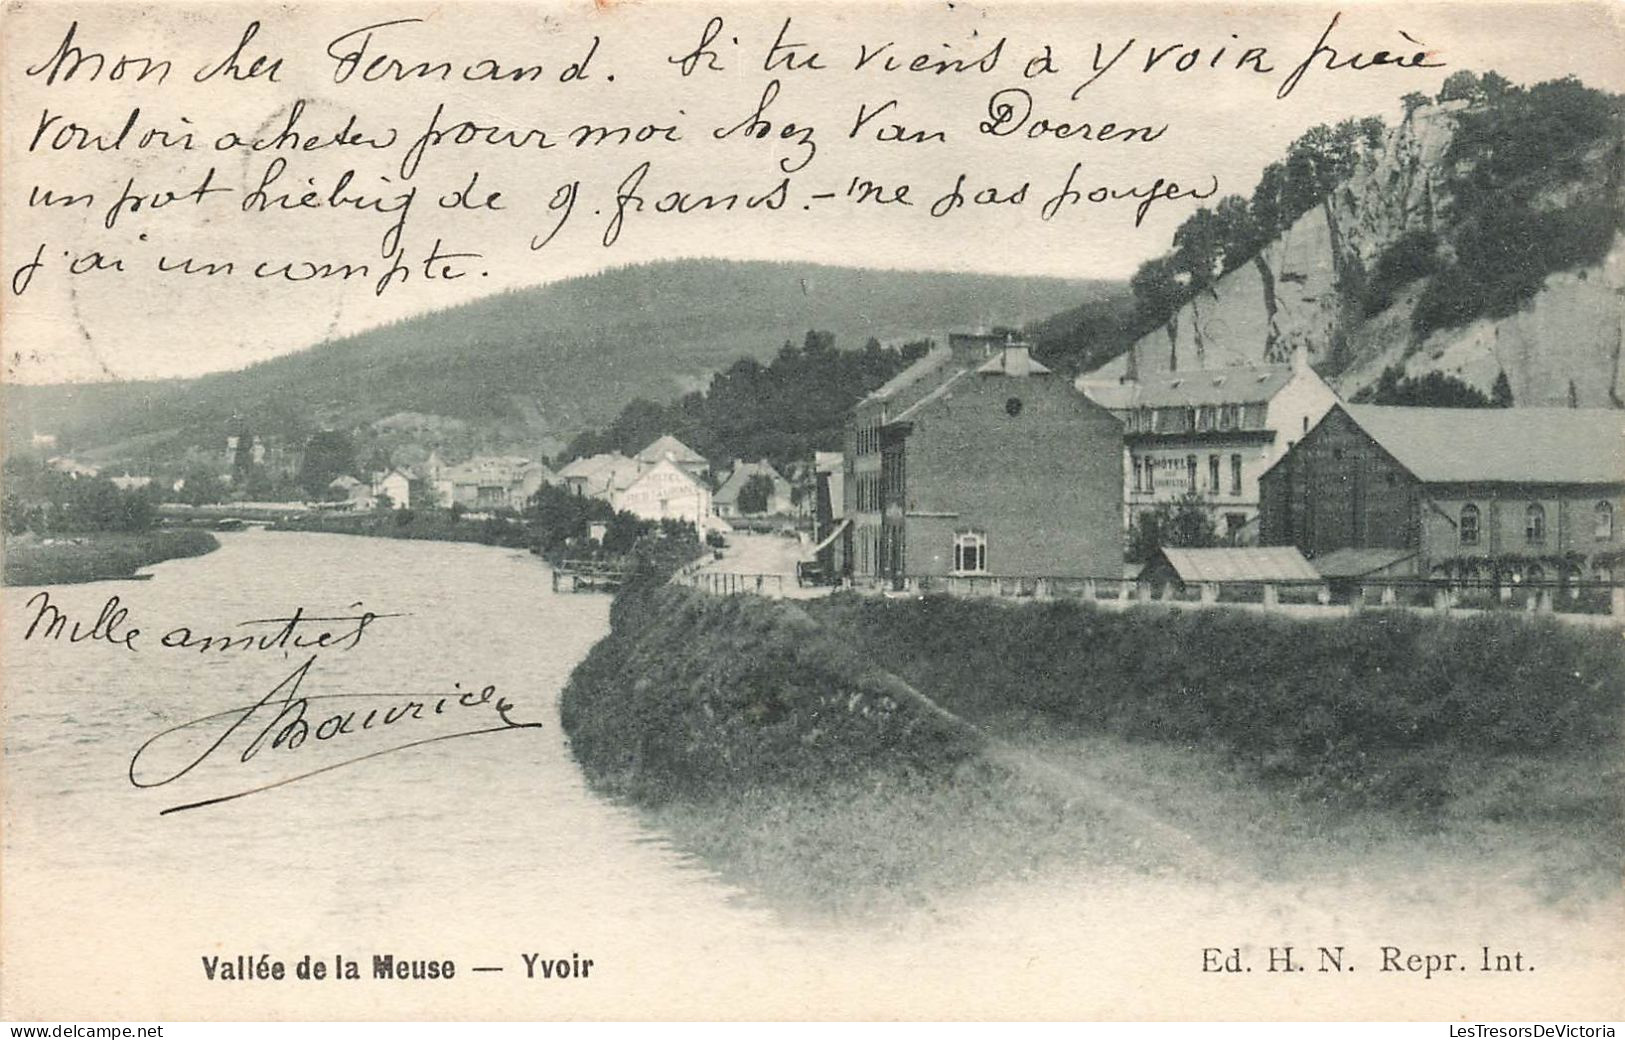 Mon cher Fernand. Si tu viens à Yvoir prière
vouloir acheter pour moi chez Van Doeren
un pot Liébig de 9. francs. - ne pas payer
j'ai un compte.
HÔTEL
Mille amitiés
Maurice
Vallée de la Meuse — Yvoir
Ed. H. N. Repr. Int.
LesTresorsDeVictoria